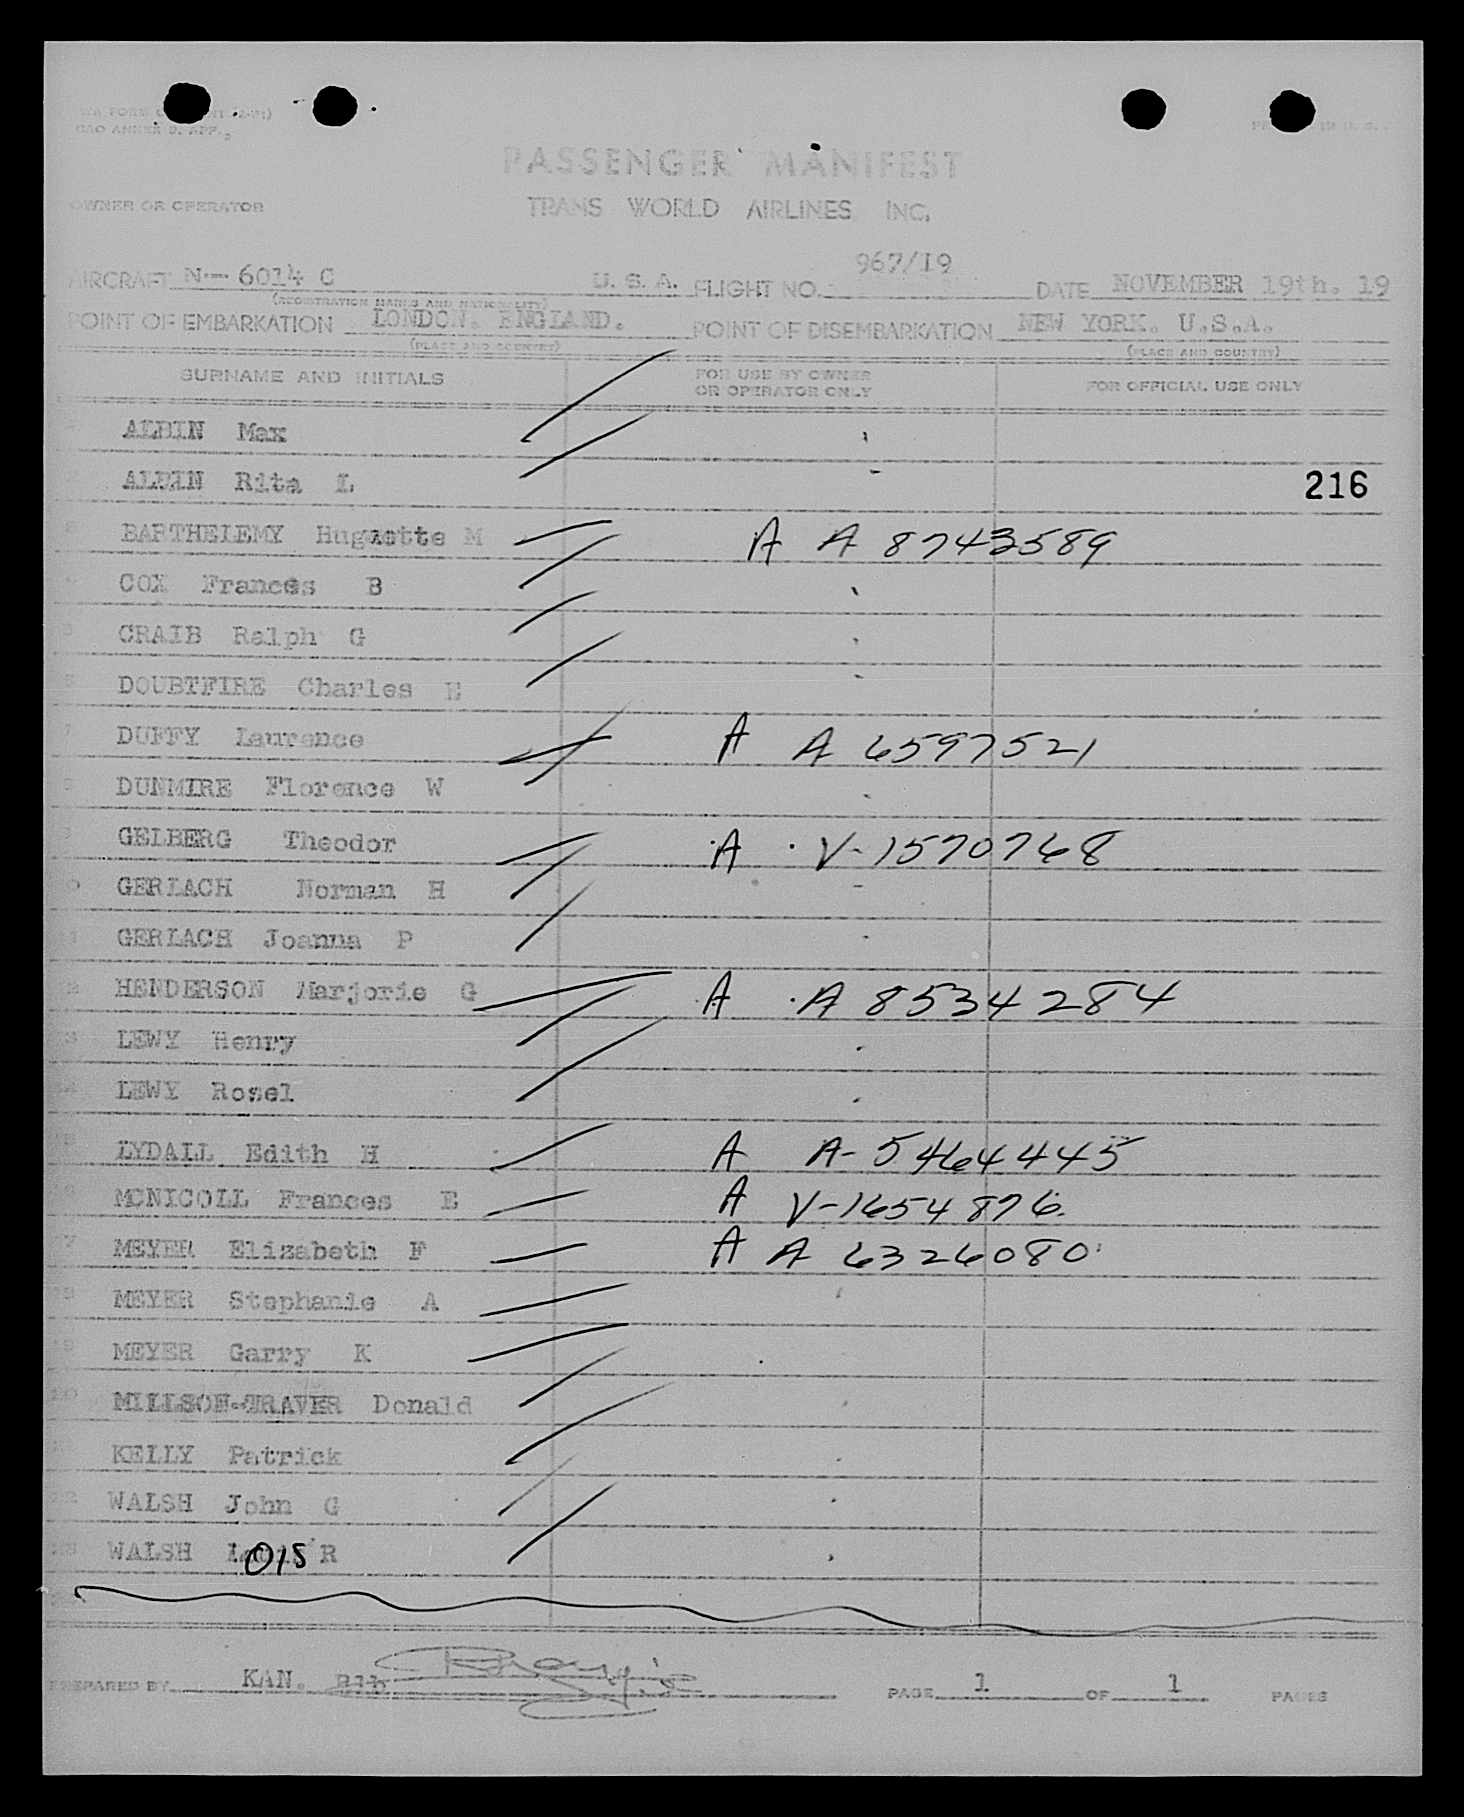 PASSENGER MANIFEST
OWNER OR OPERATOR TRANS WORLD AIRLINES, INC.
967/19
AIRCRAFT N-- 6014 C U. S. A. FLIGHT NO. DATE NOVEMBER 19th. 19
(REGISTRATION MARKS AND NATIONALITY)
POINT OF EMBARKATION LONDON. ENGLAND. POINT OF DISEMBARKATION NEW YORK. U.S.A.
(PLACE AND COUNTRY) (PLACE AND COUNTRY)
SURNAME AND INITIALS FOR USE BY OWNER OR OPERATOR ONLY FOR OFFICIAL USE ONLY
ALBIN Max
ALBIN Rita L
216
BARTHELEMY Huguette M A A 8743589
COX Frances B
CRAIB Ralph G
DOUBTFIRE Charles E
7 DUFFY Laurence A A 6597521
DUNMIRE Florence W
GELBERG Theodor A V-1570768
GERLACH Norman H
GERLACH Joanna P
HENDERSON Marjorie G A A 8534284
LEWY Henry
LEWY Rosel
LYDALL Edith H A A-5464445
MCNICOLL Frances E A V-1654876
MEYER Elizabeth F A A 6326080
MEYER Stephanie A
MEYER Garry K
20 MILLSOM-TRAVER Donald
KELLY Patrick
22 WALSH John G
23 WALSH OIS R
PREPARED BY KAN. PAGE 1 OF 1 PAGES